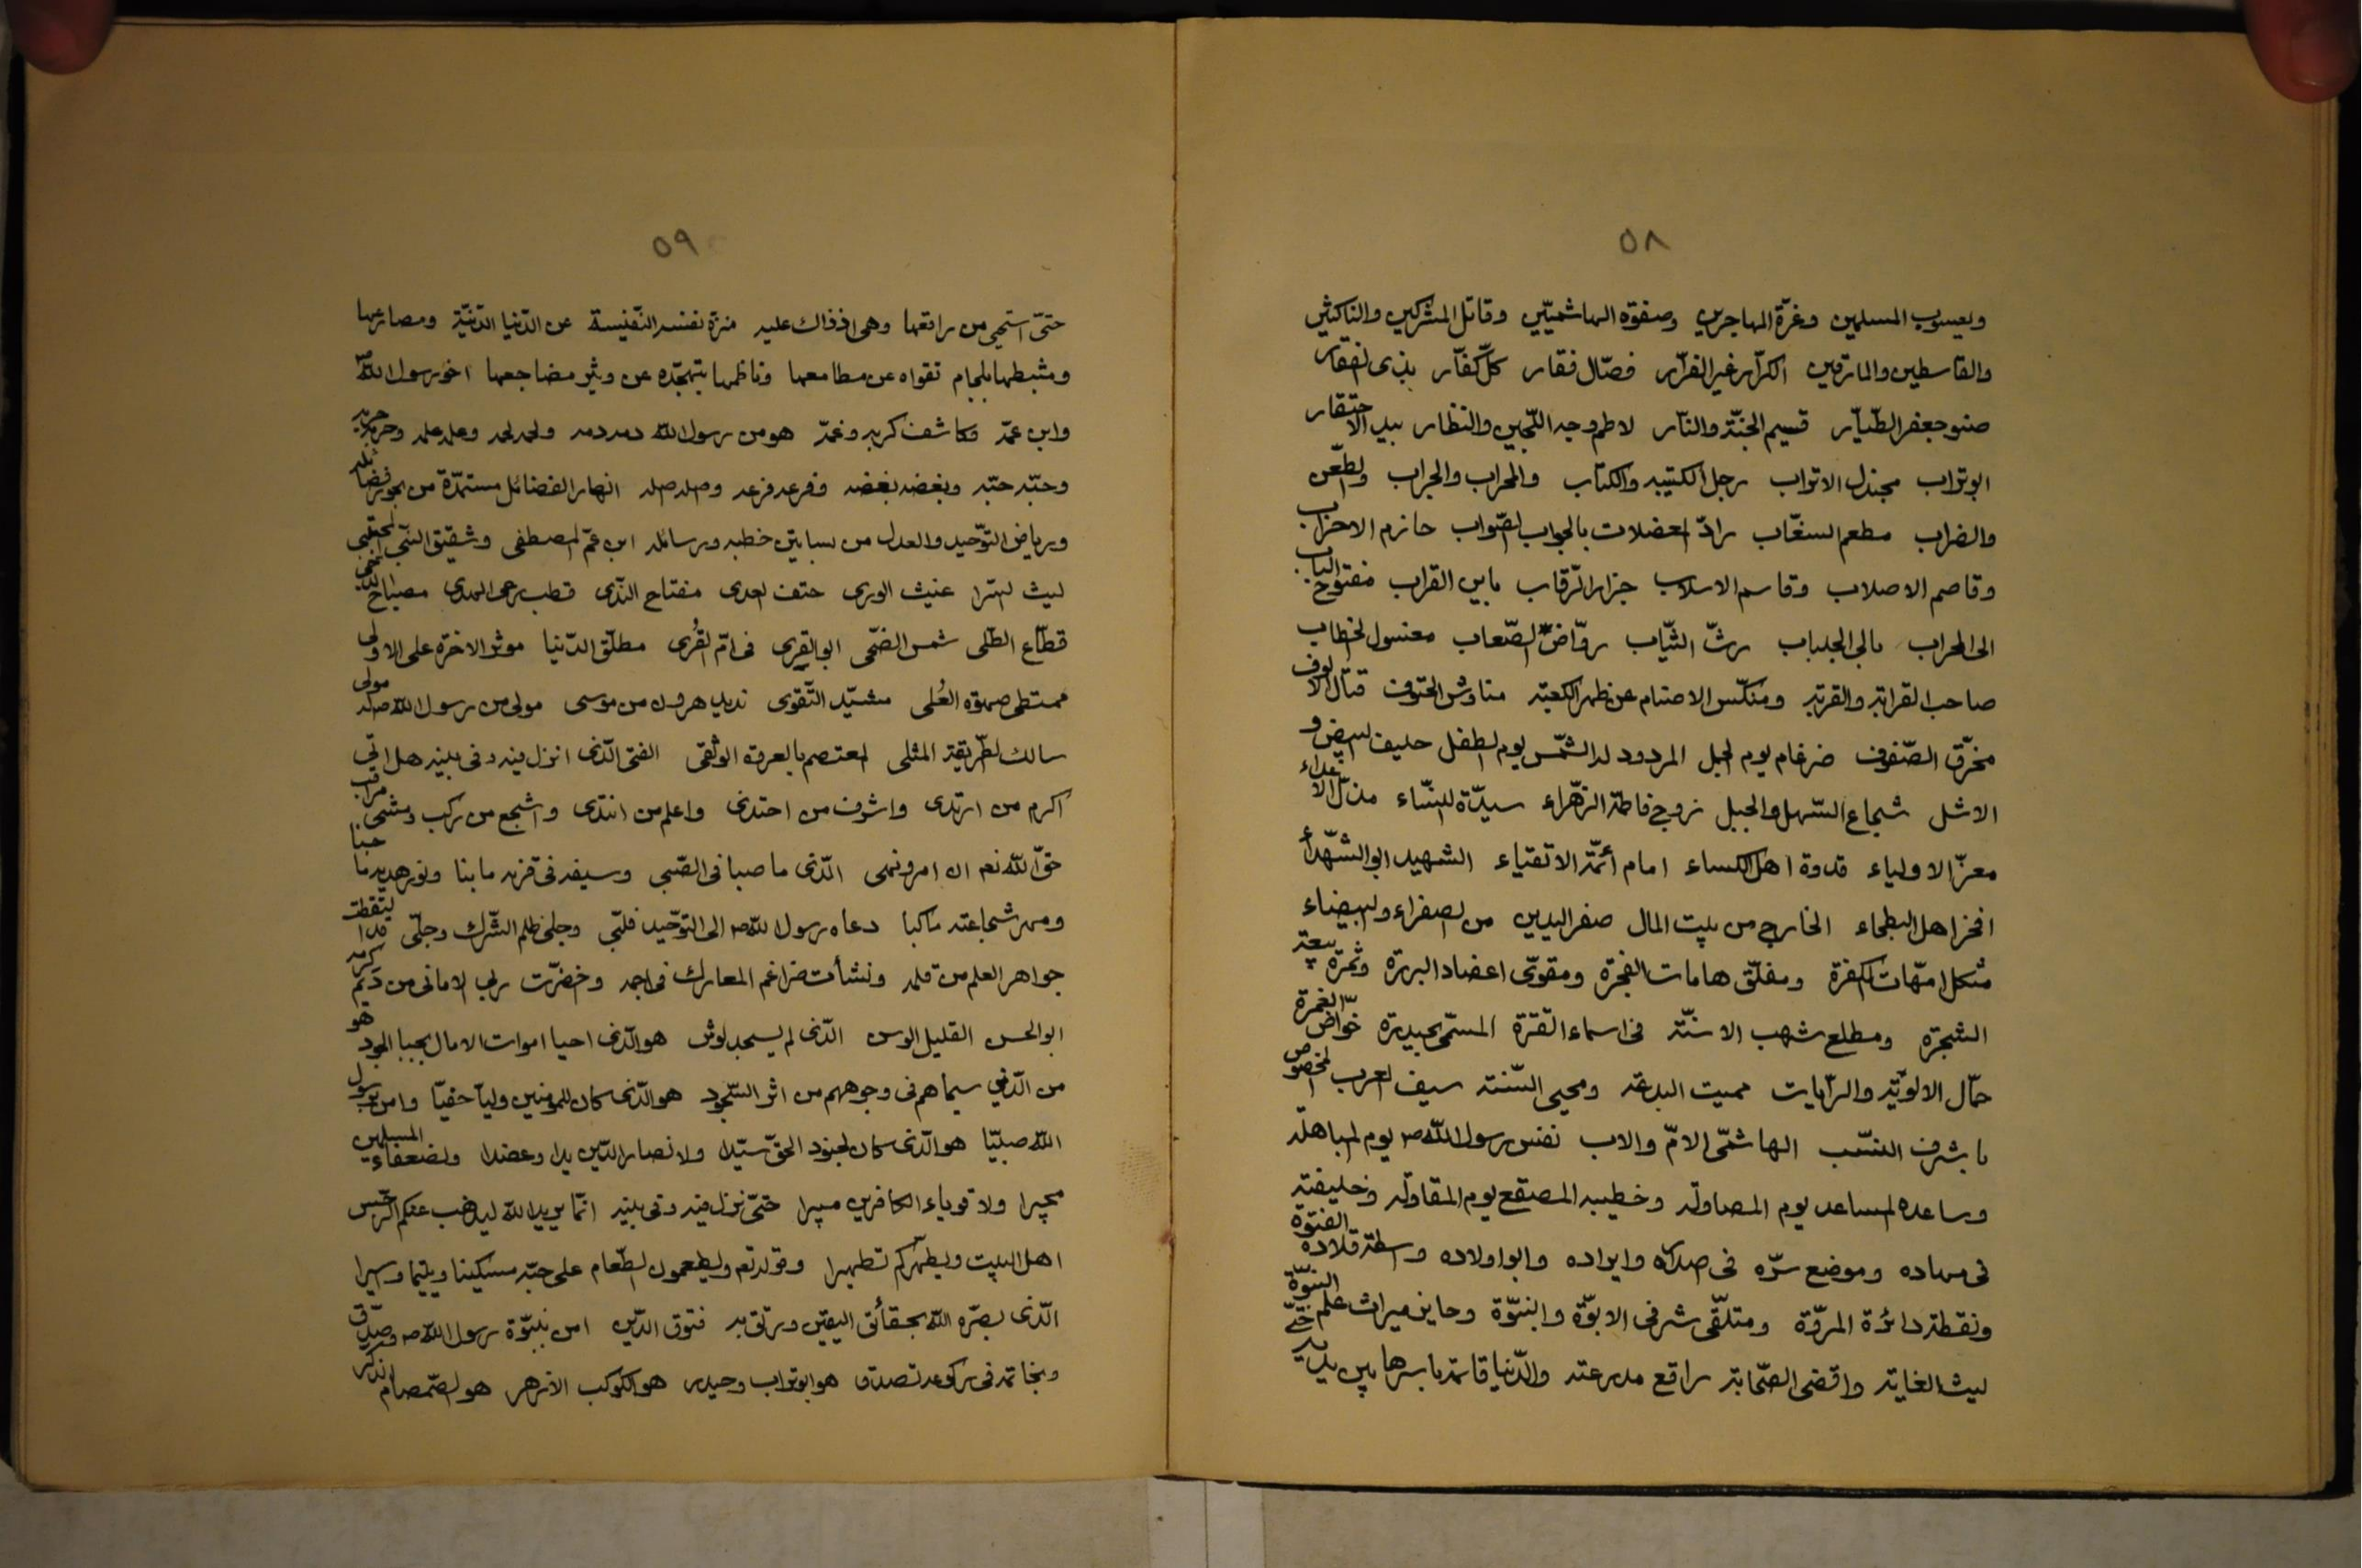 ٥٨
ويعسوب المسلمين وغرّة المهاجرين وصفوة الهاشميّين وقاتل المشركين والناكثين
والقاسطين والمارقين الكرّار غير الفرّار فصّال فقار كلّ كفّار بذى الفقار
صنو جعفر الطّيّار قسيم الجنّة والنّار لاطم وجه اللّجين والنظار بيد الاحتقار
ابوتراب مجندل الاتراب رجل الكتيبه والكتاب والمحراب والحراب والطعن
والضراب مطعم السغّاب رادّ المعضلات بالجواب الصّواب حازم الاحزاب
وقاصم الاصلاب وقاسم الاسلاب جزار الرّقاب باين القراب مفتوح الباب
الى المحراب بالى الجلباب رثّ الثيّاب روّاض الصّعاب معسول الخطاب
صاحب القرابة والقربة ومنكّس الاصنام عن ظهر الكعبة مناوش الحتوف قتال الالوف
مخرّق الصّفوف ضرغام يوم الجمل المردود له الشّمس يوم الطفل حليف البيض و
الاسل شجاع السّهل والجبل زوج فاطمة الزّهراء سيدّة النسّاء مذلّ الاعداء
معزّ الاولياء قدوة اهل الكساء امام أئمّة الاتقياء الشهيد ابو الشهّداء
افخر اهل البطحاء الخارج من بيت المال صفر اليدين من الصفراء والبيضاء
مثكل امّهات الكفرة ومفلّق هامات الفجرة ومقوّى اعضاد البررة وثمرة بيعة
الشجرة ومطلع شهب الاسنّة فى اسماء القترة المسمّى بحيدرة خوّاض الغمرة
حمّال الالوّية والرّايات مميت البدعة ومحيى السّنة سيف العرب المخصوص
بشرف النسّب الهاشمّى الامّ والاب نفس رسول اللّه ص يوم المباهلة
وساعده المساعد يوم المصاولة وخطيبه المصقع يوم المقاولة وخليفته
فى مهاده وموضع سرّه فى صداره وايراده وابو اولاده واسطة قلادة الفتوّة
ونقطة دائرة المروّة ومتلقّى شرفى الابوّة والبنوّة وحايز ميراث علم النبوّة
ليث الغابة واقضى الصّحابة راقع مدرعته والدّنيا قائمة باسرها بين يديه
٥٩
حتىّ استحيى من راقعها وهى اذ ذاك عليه منزّه نفسه النّفيسة عن الدّنيا الدّنيّة ومصارعها
ومثبطها بلجام تقواه عن مطامعها وفاطمها بتهجّده عن وثير مضاجعها اخو رسول اللّه ص
وابن عمّه وكاشف كربه وغمّه هو من رسول اللّه دمه دمه ولحمه لحمه وعلمه علمه وحربه حربه
وحبّه حبّه وبغضه بغضه وفرعه فرعه وصله صله انهار الفضائل مستمدّة من بحور فضائله
ورياض التوّحيد والعدل من بساتين خطبه ورسائله ابن عمّ المصطفى وشقيق النبّى المجتبى
ليث الشرا غيث الورى حتف العدى مفتاح النّدى قطب رحى الهدى مصباح الدجى
قطّاع الطّلى شمس الضّحى ابو القِرى فى امّ القُرى مطلّق الدّنيا موثر الاخرة على الاولى
ممتطى صهوة العُلى مشيّد التّقوى نديد هرون من موسى مولى من رسول اللّه ص له مولى
سالك الطّريقة المثلى المعتصم بالعروة الوثقى الفتى الّذى انزل فيه وفى بنيه هل اتى
اكرم من ارتدى واشرف من احتذى واعلم من انتدى واشجع من ركب ومشى
حقّ اللّه نعم ان امر ونهى الّذى ما صبا فى الصّبى وسيفه فى قرنه ما نبا ونور هديه ما خبا
ومهر شجاعته ما كبا دعاه رسول اللّه ص الى التوّحيد فلبّى وجلى ظلم الشّرك وجلّى قد التقطت
جواهر العلم من قلمه ونشأت ضراغم المعارك فى اجمه وخضرّت ربى الامانى من ديم كرمه
ابو الحسن القليل الوسن الّذى لم يسجد لوثن هو الّذى احيا اموات الامال بحيا الجود هو
من الّذين سيماهم فى وجوههم من اثر السّجود هو الّذى كان للمومنين وليّا حفيّا وامن برسول
اللّه صبيّا هو الّذى كان لجنود الحقّ سيّدا ولانصار الدّين يدا وعضدا ولضعفاء المسلمين
مجيرا ولاقوياء الكافرين مبيرا حتىّ نزل فيه وفى بنيه انمّا يريد اللّه ليذهب عنكم الرّجس
اهل البيت ويطهّركم تطهيرا وقوله تع ويطعمون الطّعام على حبّه مسكينا ويتيما واسيرا
الّذى بصّره اللّه بحقائق اليقين ورتق به فتوق الدّين امن بنبوّة رسول اللّه ص وصدّق
وبخاتمه فى ركوعه تصدّق هو ابوتراب وحيدر هو الكوكب الازهر هو الصّمصام الذكر